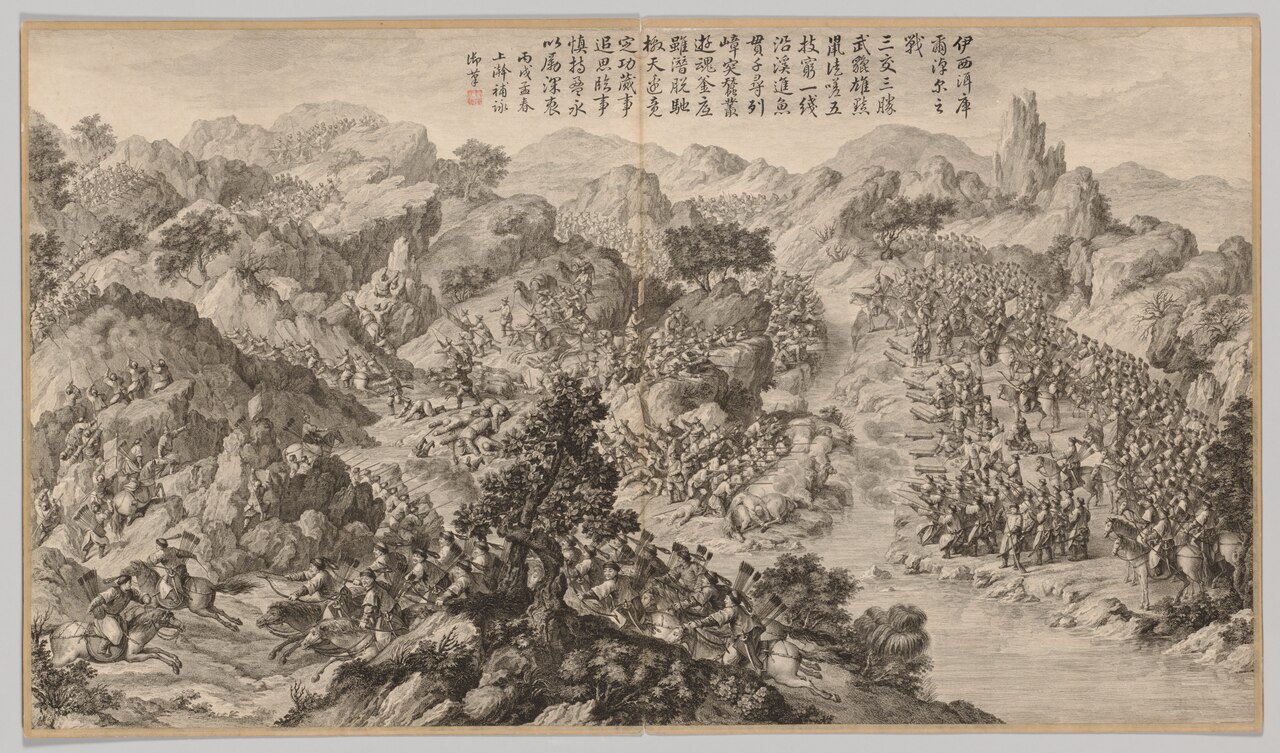 伊西洱庫
爾淖尔之
戰
三交三勝
武彌雄黠
鼠徒嗟五
技窮一綫
沿溪進魚
貫千尋列
嶂突蠶叢
遊魂釜底
雖潛脫馳
檄天邊竟
定功蕆事
追思臨事
慎持盈永
以勵深衷
丙戌孟春
上澣補詠
御筆